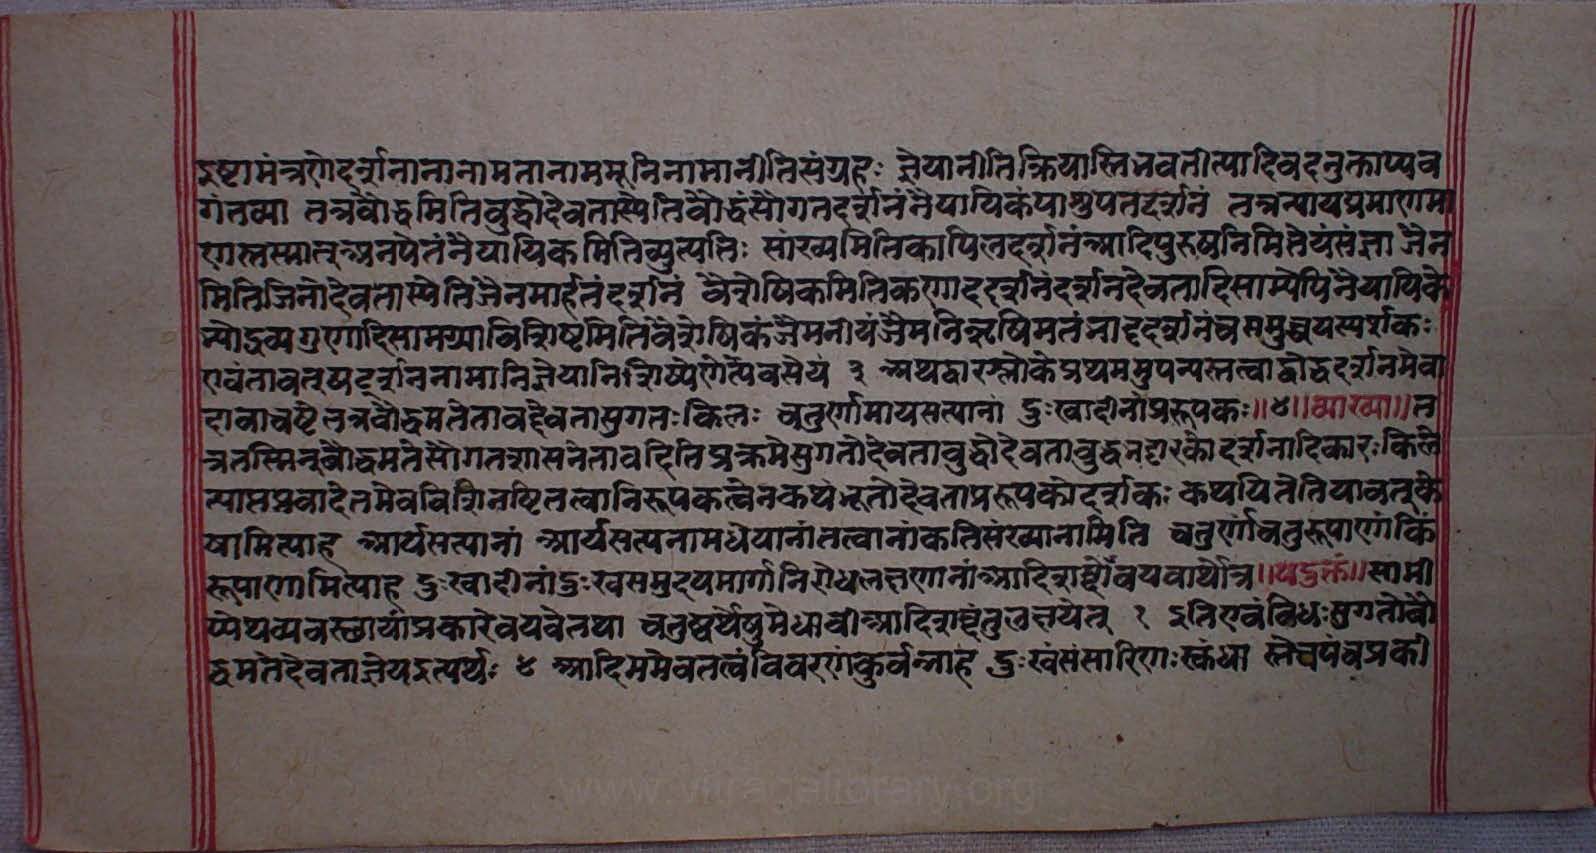 इष्टामंत्रणेदर्शनानानामतानाममूनिनामानीतिसंग्रहः ज्ञेयानीतिक्रियास्तिभवतीत्यादिवदनुक्ताप्यव
गंतव्या तत्रबौद्धमितिबुद्धोदेवतास्येतिबौद्धंसौगतदर्शनंनैयायिकंपाशुपतदर्शनं तत्रन्यायप्रमाणमा
र्गस्तस्मात्अनपेतंनैयायिकमितिव्युत्पत्तिः सांख्यमितिकापिलदर्शनंआदिपुरुषनिमित्तेयंसंज्ञा जैन
मितिजिनोदेवतास्येतिजैनमार्हतंदर्शनं वैशेषिकमितिकणाददर्शनंदर्शनदेवतादिसाम्येपिनैयायिके
न्योद्रव्यगुणादिसामग्र्याविशिष्टमितिवैशेषिकं जैमनीयंजैमनिऋषिमतं दर्शनंचसमुच्चयस्यर्शकः
एवंतावत्षट्दर्शननामानिज्ञेयानिशिष्येणेत्यवसेयं ३ अथद्वारश्लोकेप्रथममुपन्यस्तत्वाद्बौद्धदर्शनमेवा
दावाचष्टे तत्रबौद्धमतेतावद्देवतासुगतःकिलः चतुर्णामार्यसत्यानां दुःखादीनांप्ररूपकः॥४॥व्याख्या॥त
त्रतस्मिन्बौद्धमतेसौगतशासनेतावदितिप्रक्रमेसुगतोदेवताबुद्धोदेवताबुद्धभट्टारकोदर्शनादिकारःकिले
त्याप्तप्रवादेतमेवविशिनष्टितत्वानिरूपकत्वेनकथंभूतोदेवताप्ररूपकोदर्शकः कथयितेतियावत्के
षामित्याह आर्यसत्यानां आर्यसत्यनामधेयानांतत्वानांकतिसंख्यानामिति चतुर्णांचतुरूपाणांकिं
रूपाणामित्याह दुःखादीनांदुःखसमुदयमार्गनिरोधलक्षणानांआदिशब्दोवयवार्थोत्र॥यदुक्तं॥सामी
प्येथव्यवस्थायांप्रकारेवयवेतथा चतुष्वर्थेषुमेधावीआदिशब्दंतुलक्षयेत् १ इतिएवंविधःसुगतोबौ
द्धमतेदेवताज्ञेयइत्यर्थः ४ आदिममेवतत्वंविवरणंकुर्वन्नाह दुःखंसंसारिणःस्कंधा स्तेचपंचप्रकी
www.vitragalibrary.org